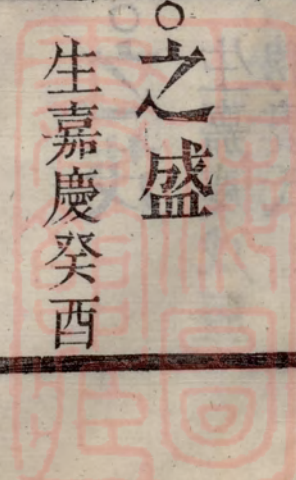 ○之盛
生嘉慶癸酉